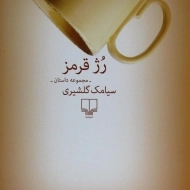 رُژ قرمز
ـ مجموعه داستان ـ
سیامک گلشیری